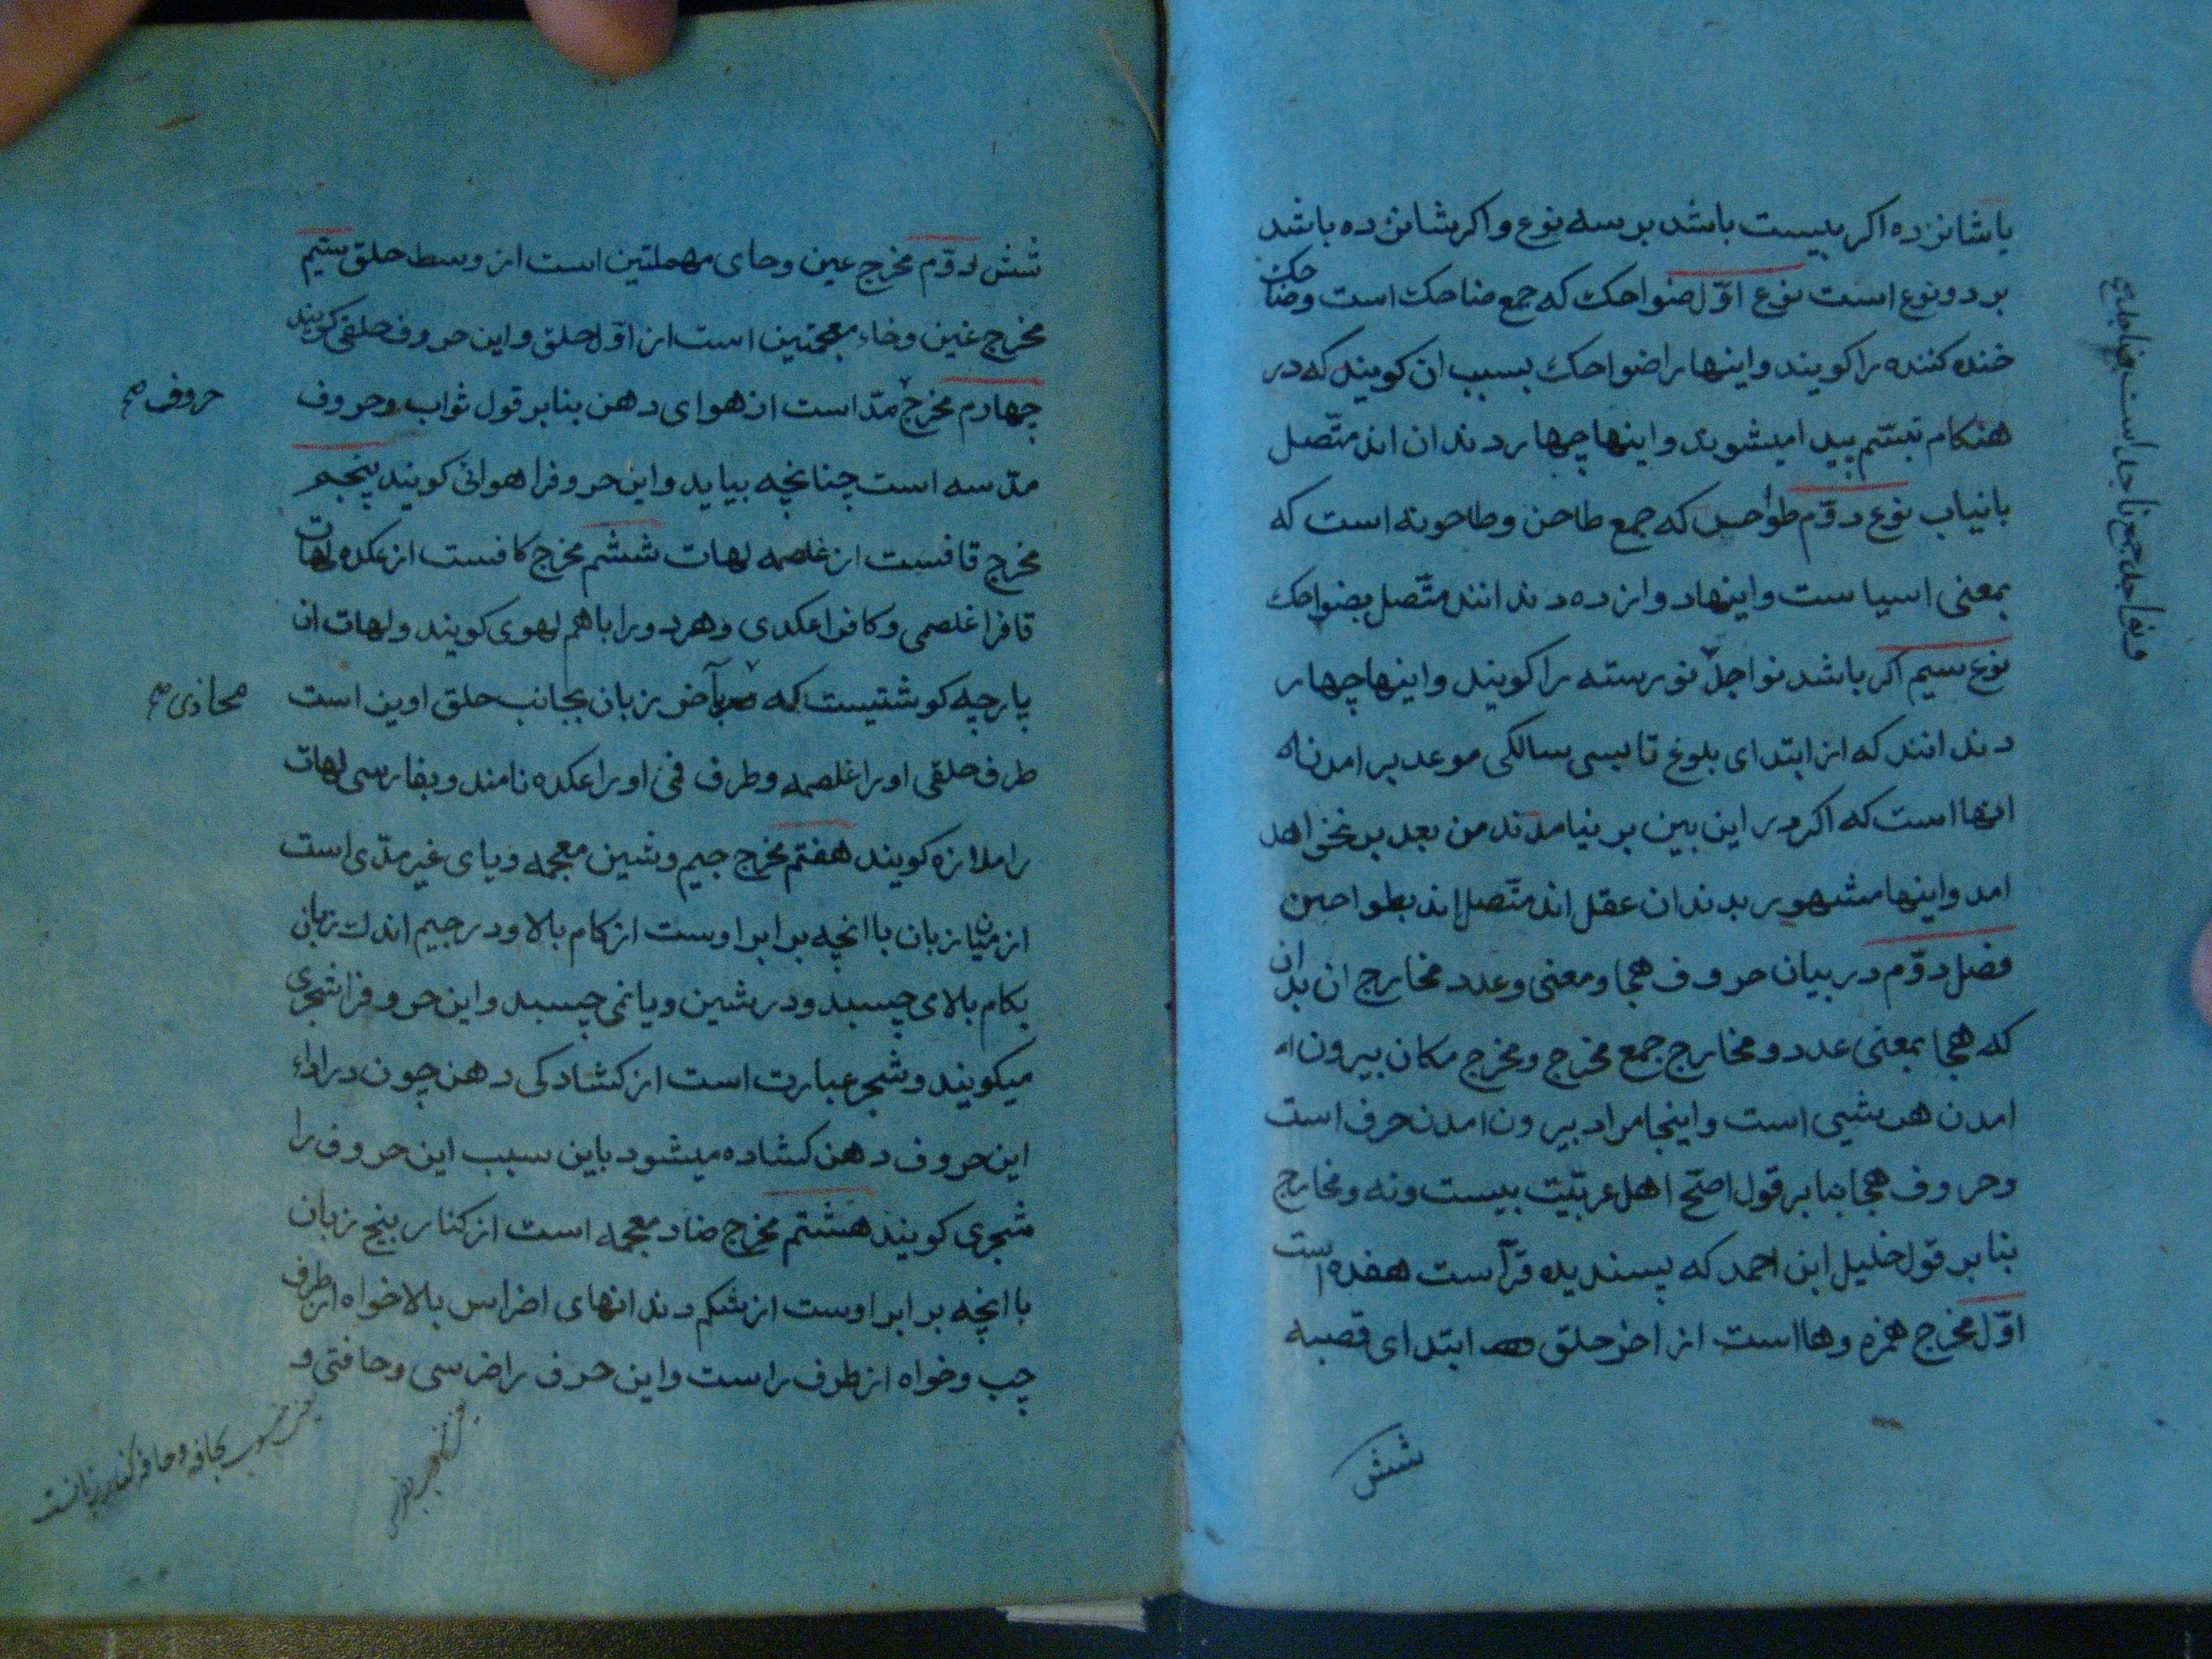 یا شانزده اکر بیست باشد بر سه نوع و اکر شانزده باشد
بر دو نوع است نوع اوّل ضواحک که جمع ضاحک است وضاحک
خنده کننده را کویند و اینها را ضواحک بسبب ان کویند که در
هنکام تبسّم پیدا میشوند و اینها چهار دندان اند متّصل
بانیاب نوع دوّم طواحن که جمع طاحن وطاحونه است که
بمعنی اسیاست و اینها دوازده دندانند متّصل بضواحک
نوع سیم اکر باشد نواجذ نورسته را کویند و اینها چهار
دندانند که از ابتدای بلوغ تا بسی سالکی موعد بر امدن
انها است که اکر در این بین بر نیامدند من بعد بر نخواهد
امد و اینها مشهور بدندان عقل اند متّصل اند بطواحین
فصل دوّم در بیان حروف هجا ومعنی وعدد مخارج ان بدان
که هجا بمعنی عدد و مخارج جمع مخرج ومخرج مکان بیرون
امدن هر شیی است و اینجا مراد بیرون امدن حرف است
وحروف هجا بنا بر قول اصّح اهل عربیّت بیست ونه و مخارج
بنا بر قول خلیل ابن احمد که پسندیده قرآست هفده است
اوّل مخرج همزه وها است از اخر حلق ابتدای قصبه
شش
شش دوّم مخرج عین وحای مهملتین است از وسط حلق سیّم
مخرج غین وخاء معجمتین است از اوّل حلق و این حروف حلقی کویند
چهارم مخرج مدّ است از هوای دهن بنا بر قول ثواب وحروف
حروف
مدّ سه است چنانچه بیاید و این حروفرا هوائی کویند پنجم
مخرج قافست از غلصمه لهات ششم مخرج کافست از عکده لهات
قافرا غلصمی وکافرا عکدی و هر دو را با هم لهوی کویند ولهات ان
پارچه کوشتیست که بآخر زبان بجانب حلق اوین است
محاذی
طرف حلقی اورا غلصمه وطرف فمی اورا عکده نامند وبفارسی لهات
را ملازه کویند هفتم مخرج جیم وشین معجمه ویای غیر مدّی است
از میان زبان با انچه برابر اوست از کام بالا ودر جیم اندک زبان
بکام بالای چسبد ودر شین ویا نمی چسبد و این حروفرا شجری
میکویند وشجر عبارت است از کشادکی دهن چون در اداء
این حروف دهن کشاده میشود باین سبب این حروف را
شجری کویند هشتم مخرج ضاد معجمه است از کنار بیخ زبان
با انچه برابر اوست از شکم دندانهای اضراس بالا خواه از طرف
چپ وخواه از طرف راست و این حرف را ضرسی وحافتی و